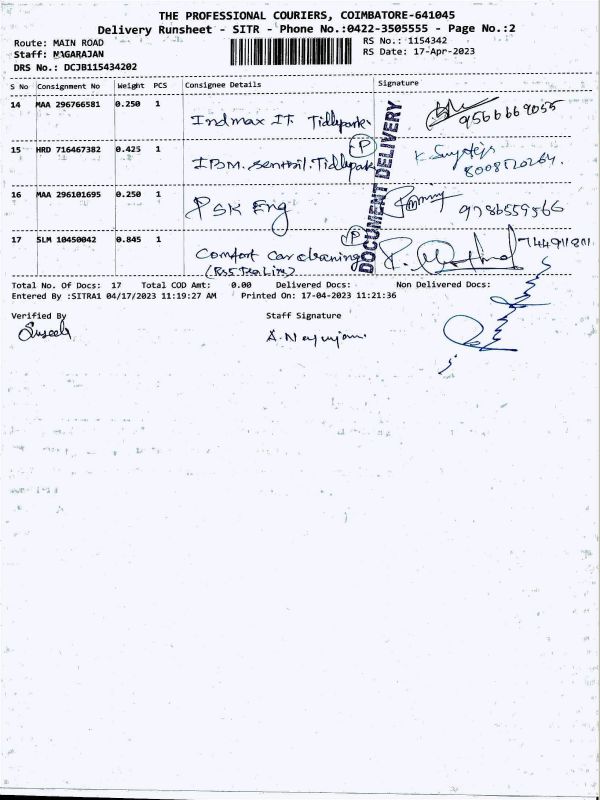 THE PROFESSIONAL COURIERS, COIMBATORE-641045
Delivery Runsheet - SITR - Phone No.:0422-3505555 - Page No.:2
Route: MAIN ROAD
Staff: NAGARAJAN
DRS No.: DCJB115434202
RS No.: 1154342
RS Date: 17-Apr-2023
S No Consignment No Weight PCS Consignee Details Signature
14 MAA 296766581 0.250 1 Indmax IT Tidlepark. 9566669055
15 HRD 716467382 0.425 1 IBM. Senthil. Tidlepark P 8008520264.
16 MAA 296101695 0.250 1 PSK Eng 9786559566
17 SLM 10450042 0.845 1 Comfort Car cleaning P
DOCUMENT DELIVERY
Total No. Of Docs: 17 Total COD Amt: 0.00 Delivered Docs: Non Delivered Docs:
Entered By :SITRA1 04/17/2023 11:19:27 AM Printed On: 17-04-2023 11:21:36
Verified By Staff Signature